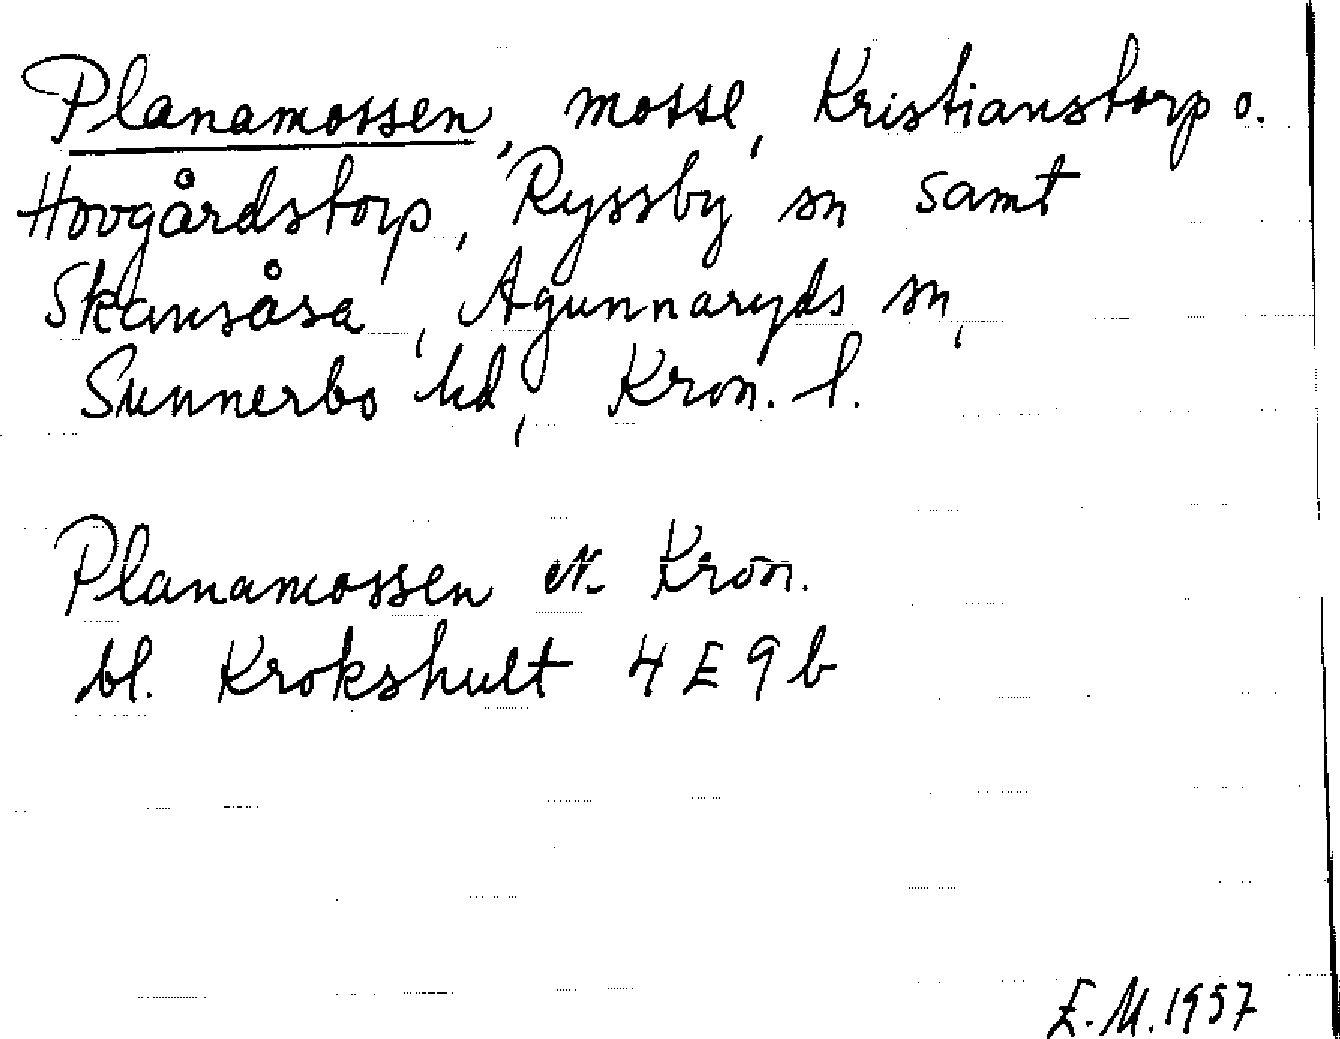 Planamossen, mosse, Kristianstorp o.
Hovgårdstorp, Ryssby sn samt
Skansåsa, Agunnaryds sn,
Sunnerbo hd, Kron. l.
Planamossen ek. Kron.
bl. Krokshult 4 E 9 b
E. M. 1957